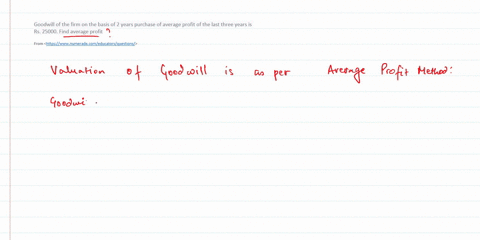 Goodwill of the firm on the basis of 2 years purchase of average profit of the last three years is
Rs. 25000. Find average profit ?
From <https://www.numerade.com/education/questions/>
Valuation of Goodwill is as per Average Profit Method:
Goodwi